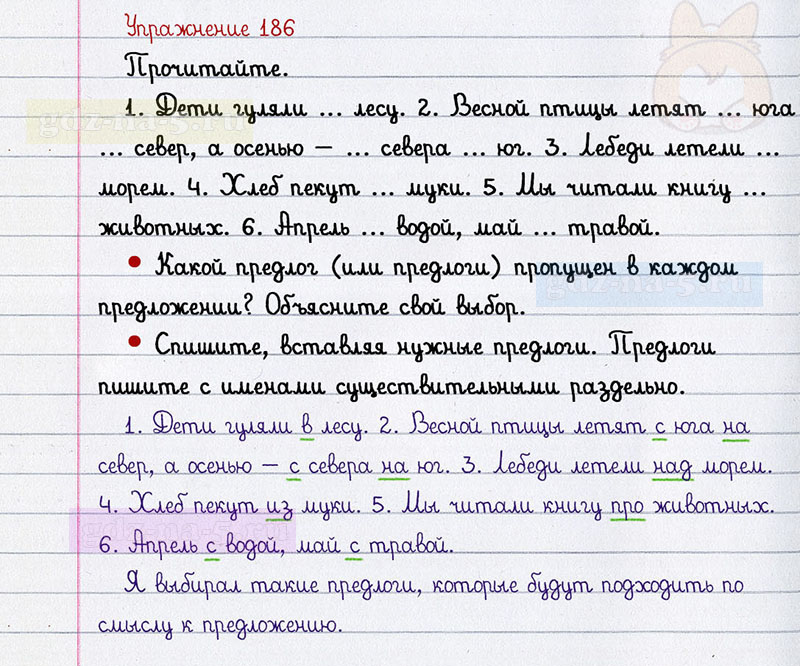 Упражнение 186
Прочитайте.
1. Дети гуляли ... лесу. 2. Весной птицы летят ... юга
... север, а осенью – ... севера ... юг. 3. Лебеди летели ...
морем. 4. Хлеб пекут ... муки. 5. Мы читали книгу ...
животных. 6. Апрель ... водой, май ... травой.
gdz-na-5.ru
• Какой предлог (или предлоги) пропущен в каждом
предложении? Объясните свой выбор.
gdz-na-5.ru
• Спишите, вставляя нужные предлоги. Предлоги
пишите с именами существительными раздельно.
1. Дети гуляли в лесу. 2. Весной птицы летят с юга на
север, а осенью – с севера на юг. 3. Лебеди летели над морем.
4. Хлеб пекут из муки. 5. Мы читали книгу про животных.
gdz-na-5.ru
6. Апрель с водой, май с травой.
Я выбирал такие предлоги, которые будут подходить по
смыслу к предложению.